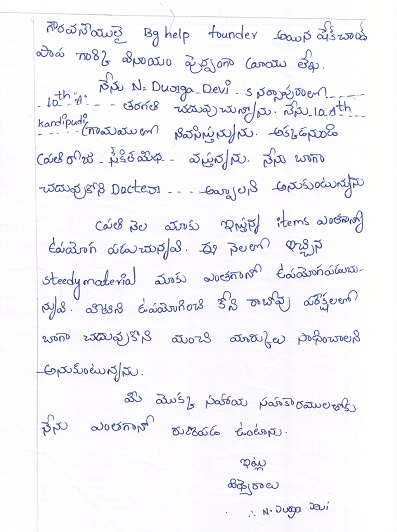 గౌరవనీయులై Bg help founder అయిన షేక్ చాంద్
పాషా గారికి వినయం పూర్వంగా వ్రాయు లేఖ.
నేను N. Durga Devi - K నర్సాపురంలో
10th "A" తరగతి చదువుచున్నాను. నేను
kandipudi గ్రామములో నివసిస్తున్నాను. అక్కడనుండి
ప్రతి రోజు వస్తున్నాను. నేను బాగా
చదువుకోని Doctera ---- అవ్వాలని అనుకుంటున్నాను
ప్రతి నెల మాకు ఇస్తున్న items ఎంతగానో
ఉపయోగ పడుచున్నవి. ఈ నెలలో ఇచ్చిన
steedymaterial మాకు ఎంతగానో ఉపయోగపడుచు-
న్నవి. వీటిని ఉపయోగించి కోని రాబోవు పరీక్షలలో
బాగా చదువుకొని మంచి మార్కులు సాధించాలని
అనుకుంటున్నాను.
మీ యొక్క సహాయ సహకారములకు
నేను ఎంతగానో రుణపడి ఉంటాను.
ఇట్లు
విధేయరాలు
∴ N. Durga Devi